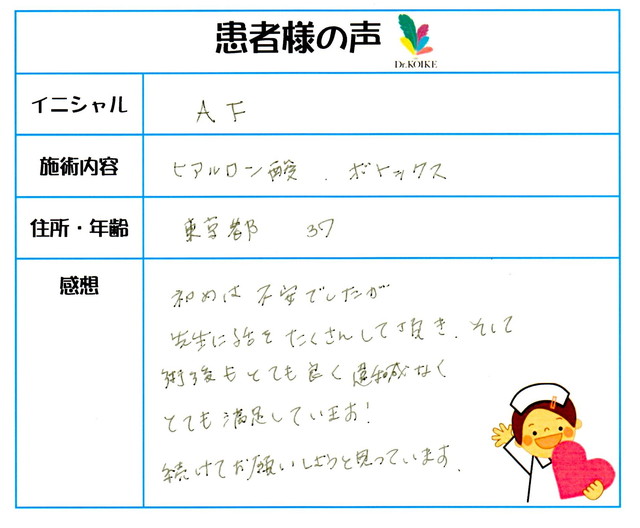 患者様の声
Dr.KOIKE
イニシャル
A F
施術内容
ヒアルロン酸 . ボトックス
住所・年齢
東京都 37
感想
初めは不安でしたが
先生に話をたくさんして頂き、そして
術後もとても良く違和感なく
とても満足しています!
続けてお願いしようと思っています.